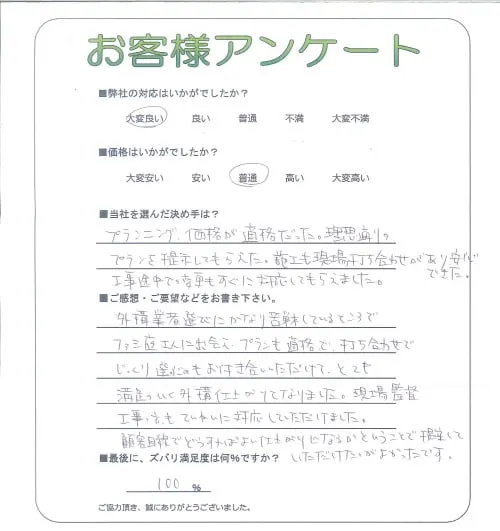 お客様アンケート
■弊社の対応はいかがでしたか？
大変良い 良い 普通 不満 大変不満
■価格はいかがでしたか？
大変安い 安い 普通 高い 大変高い
■当社を選んだ決め手は？
プランニング、価格が適格だった。理想通りの
プランを提示してもらえた。施工も現場打ち合わせがあり安心
できた。
工事途中での変更もすぐに対応してもらえました。
■ご感想・ご要望などをお書き下さい。
外構業者選びにかなり苦戦しているところで
ファミ庭さんにお会え、プランも適格で、打ち合わせで
じっくり お付き合いいただけて、とても
満足のいく外構仕上がりになりました。現場監督
工事の方もていねいに対応していただけました。
顧客目線でどうすればよい仕上がりになるかということで提案して
いただけたのがよかったです。
■最後に、ズバリ満足度は何%ですか？
100 %
ご協力頂き、誠にありがとうございました。